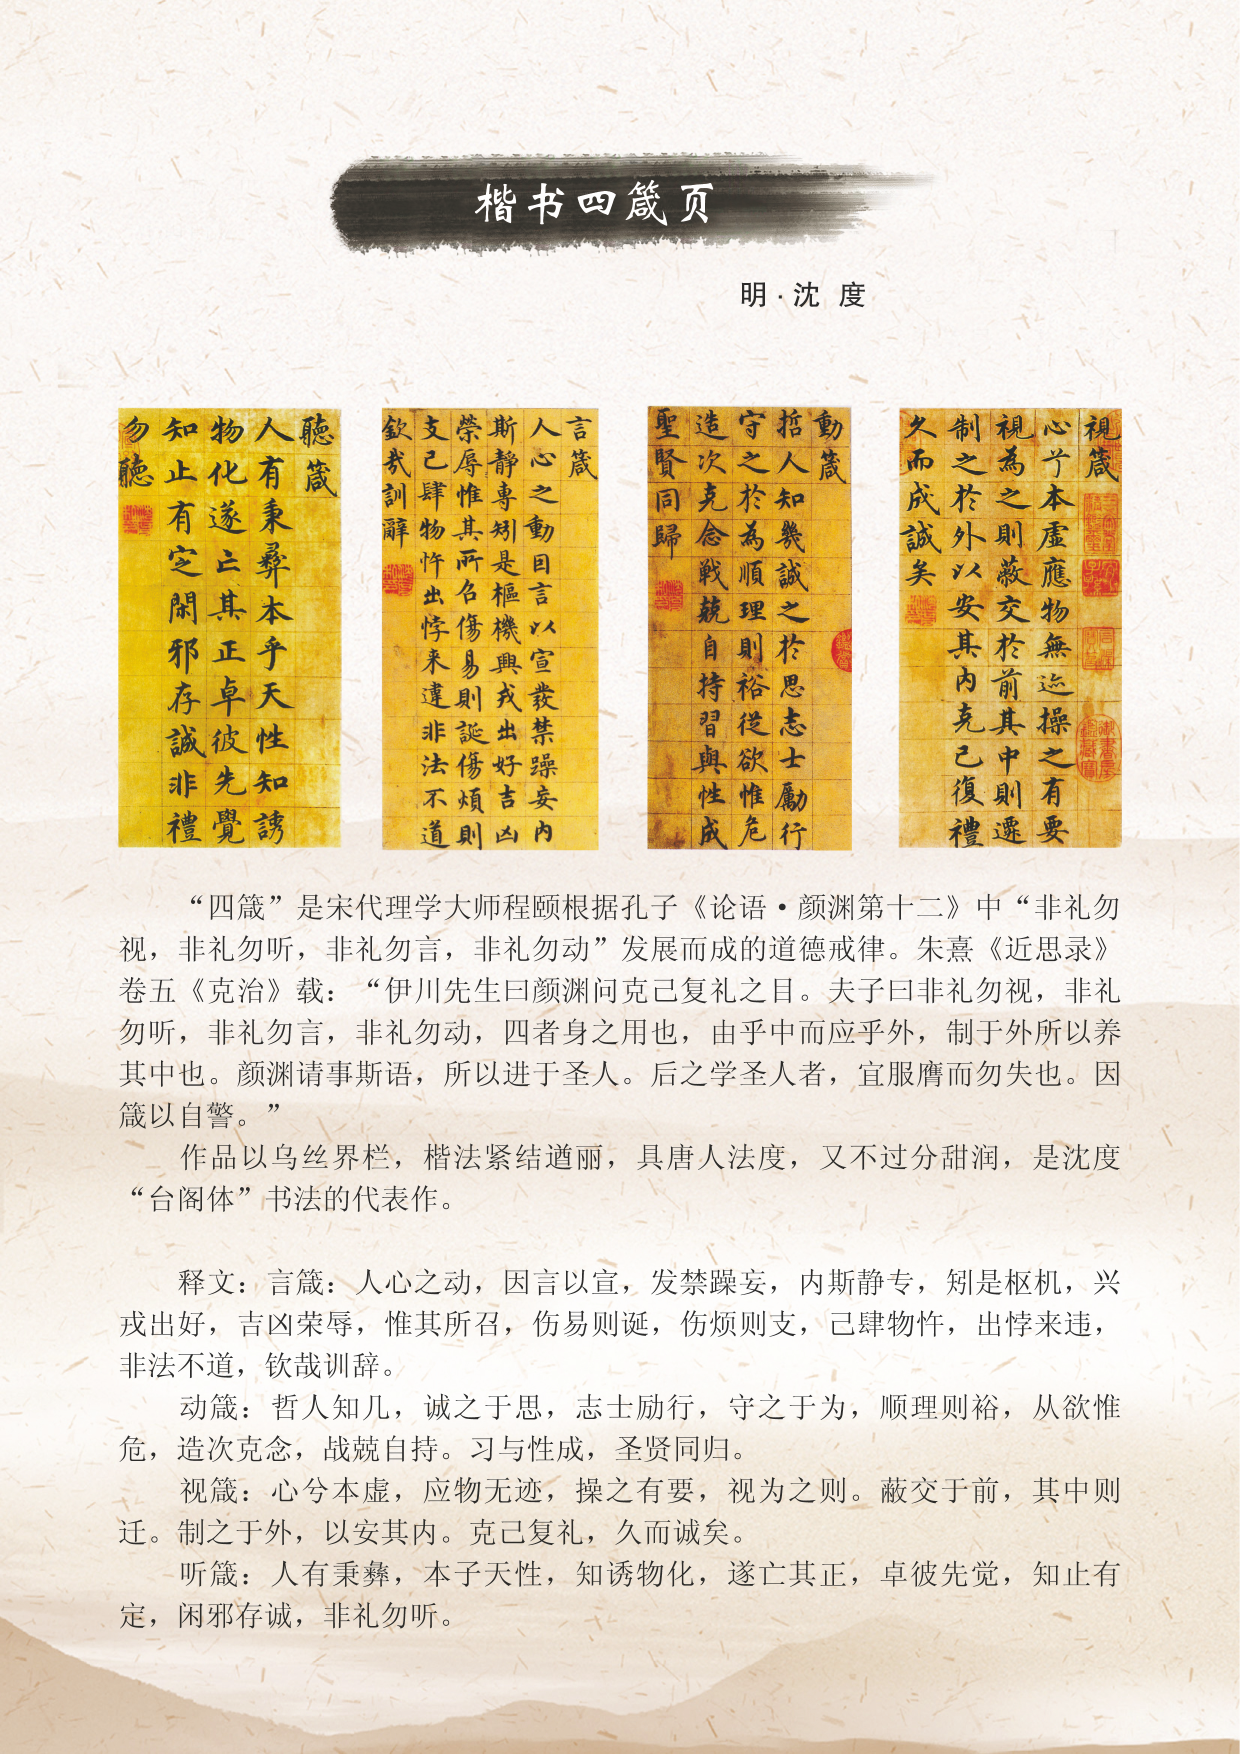 楷书四箴页
明·沈 度
視箴
心兮本虛應物無迹操之有要
視為之則蔽交於前其中則遷
制之於外以安其內克己復禮
久而成誠矣
動箴
哲人知幾誠之於思志士勵行
守之於為順理則裕從欲惟危
造次克念戰兢自持習與性成
聖賢同歸
言箴
人心之動因言以宣發禁躁妄內
斯靜專矧是樞機興戎出好吉凶
榮辱惟其所召傷易則誕傷煩則
支己肆物忤出悖来違非法不道
欽哉訓辭
聽箴
人有秉彝本乎天性知誘
物化遂亡其正卓彼先覺
知止有定閑邪存誠非禮
勿聽
“四箴”是宋代理学大师程颐根据孔子《论语·颜渊第十二》中“非礼勿
视，非礼勿听，非礼勿言，非礼勿动”发展而成的道德戒律。朱熹《近思录》
卷五《克治》载：“伊川先生曰颜渊问克己复礼之目。夫子曰非礼勿视，非礼
勿听，非礼勿言，非礼勿动，四者身之用也，由乎中而应乎外，制于外所以养
其中也。颜渊请事斯语，所以进于圣人。后之学圣人者，宜服膺而勿失也。因
箴以自警。”
作品以乌丝界栏，楷法紧结遒丽，具唐人法度，又不过分甜润，是沈度
“台阁体”书法的代表作。
释文：言箴：人心之动，因言以宣，发禁躁妄，内斯静专，矧是枢机，兴
戎出好，吉凶荣辱，惟其所召，伤易则诞，伤烦则支，己肆物忤，出悖来违，
非法不道，钦哉训辞。
动箴：哲人知几，诚之于思，志士励行，守之于为，顺理则裕，从欲惟
危，造次克念，战兢自持。习与性成，圣贤同归。
视箴：心兮本虚，应物无迹，操之有要，视为之则。蔽交于前，其中则
迁。制之于外，以安其内。克己复礼，久而诚矣。
听箴：人有秉彝，本子天性，知诱物化，遂亡其正，卓彼先觉，知止有
定，闲邪存诚，非礼勿听。